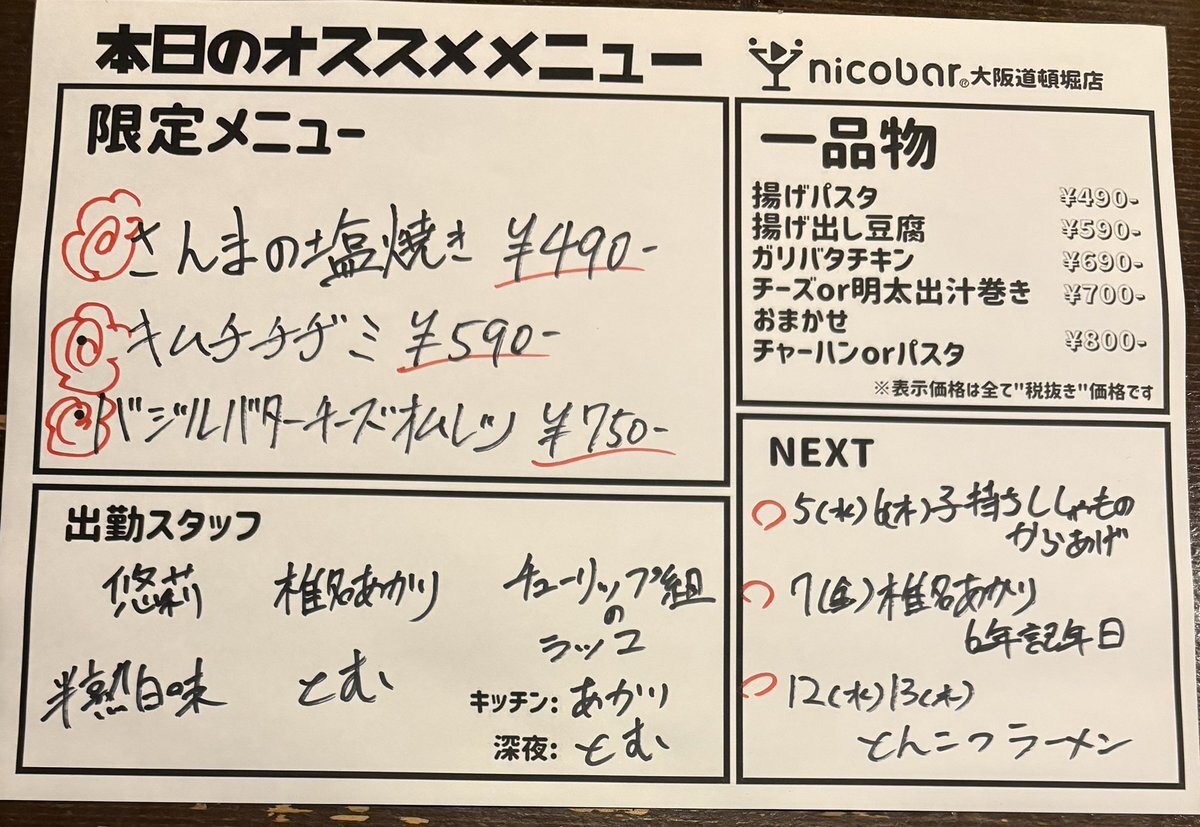 本日のオススメメニュー
nicobar®大阪道頓堀店
限定メニュー
さんまの塩焼き ¥490-
キムチチヂミ ¥590-
バジルバターチーズオムレツ ¥750-
一品物
揚げパスタ ¥490-
揚げ出し豆腐 ¥590-
ガリバタチキン ¥690-
チーズor明太出汁巻き ¥700-
おまかせ
チャーハンorパスタ ¥800-
※表示価格は全て"税抜き"価格です
出勤スタッフ
悠莉 椎名あかり チューリップ組
の
ラッコ
半熟白味 とむ
キッチン: あかり
深夜: とむ
NEXT
5(水)6(木)子持ちししゃもの
からあげ
7(金)椎名あかり
6年記年日
12(水)13(木)
とんこつラーメン